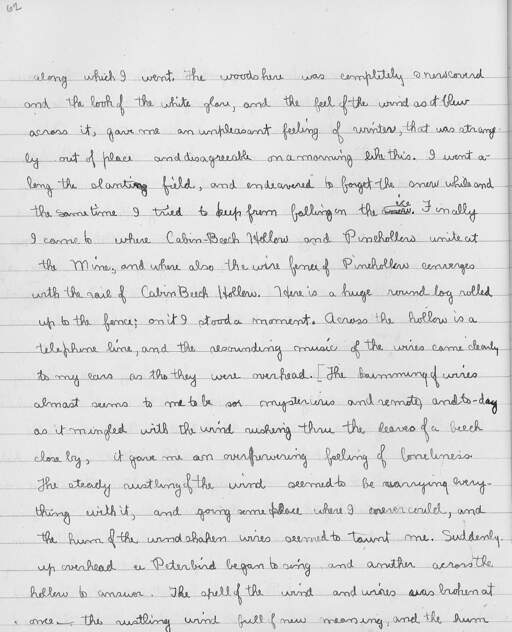 62
along which I went. The woods here was completely snowcoverd
and the look of the white glare, and the feel of the wind as it blew
across it, gave me an unpleasant feeling of winter, that was strange
ly out of place and disagreeable on a morning like this. I went a-
long the slanting field, and endeavored to forget the snow while and
the same time I tried to keep from falling on the ice. Finally
I came to where Cabin-Beech Hollow and Pinehollow unite at
the Mine, and where also the wire fence of Pinehollow converges
with the rail of Cabin Beech Hollow. Here is a huge round log rolled
up to the fence; on it I stood a moment. Across the hollow is a
telephone line, and the resounding music of the wires came clearly
to my ears as tho they were overhead. [The humming of wires
almost seems to me to be so mysterious and remote, and to-day
as it mingled with the wind rushing thru the leaves of a beech
close by, it gave me an overpowering feeling of loneliness
The steady rustling of the wind seemed to be carrying every-
thing with it, and going some place where I never could, and
the hum of the windshaken wires seemed to taunt me. Suddenly
up overhead a Peterbird began to sing and another across the
hollow to answer. The spell of the wind and wires was broken at
once — the rustling wind full of new meaning, and the hum